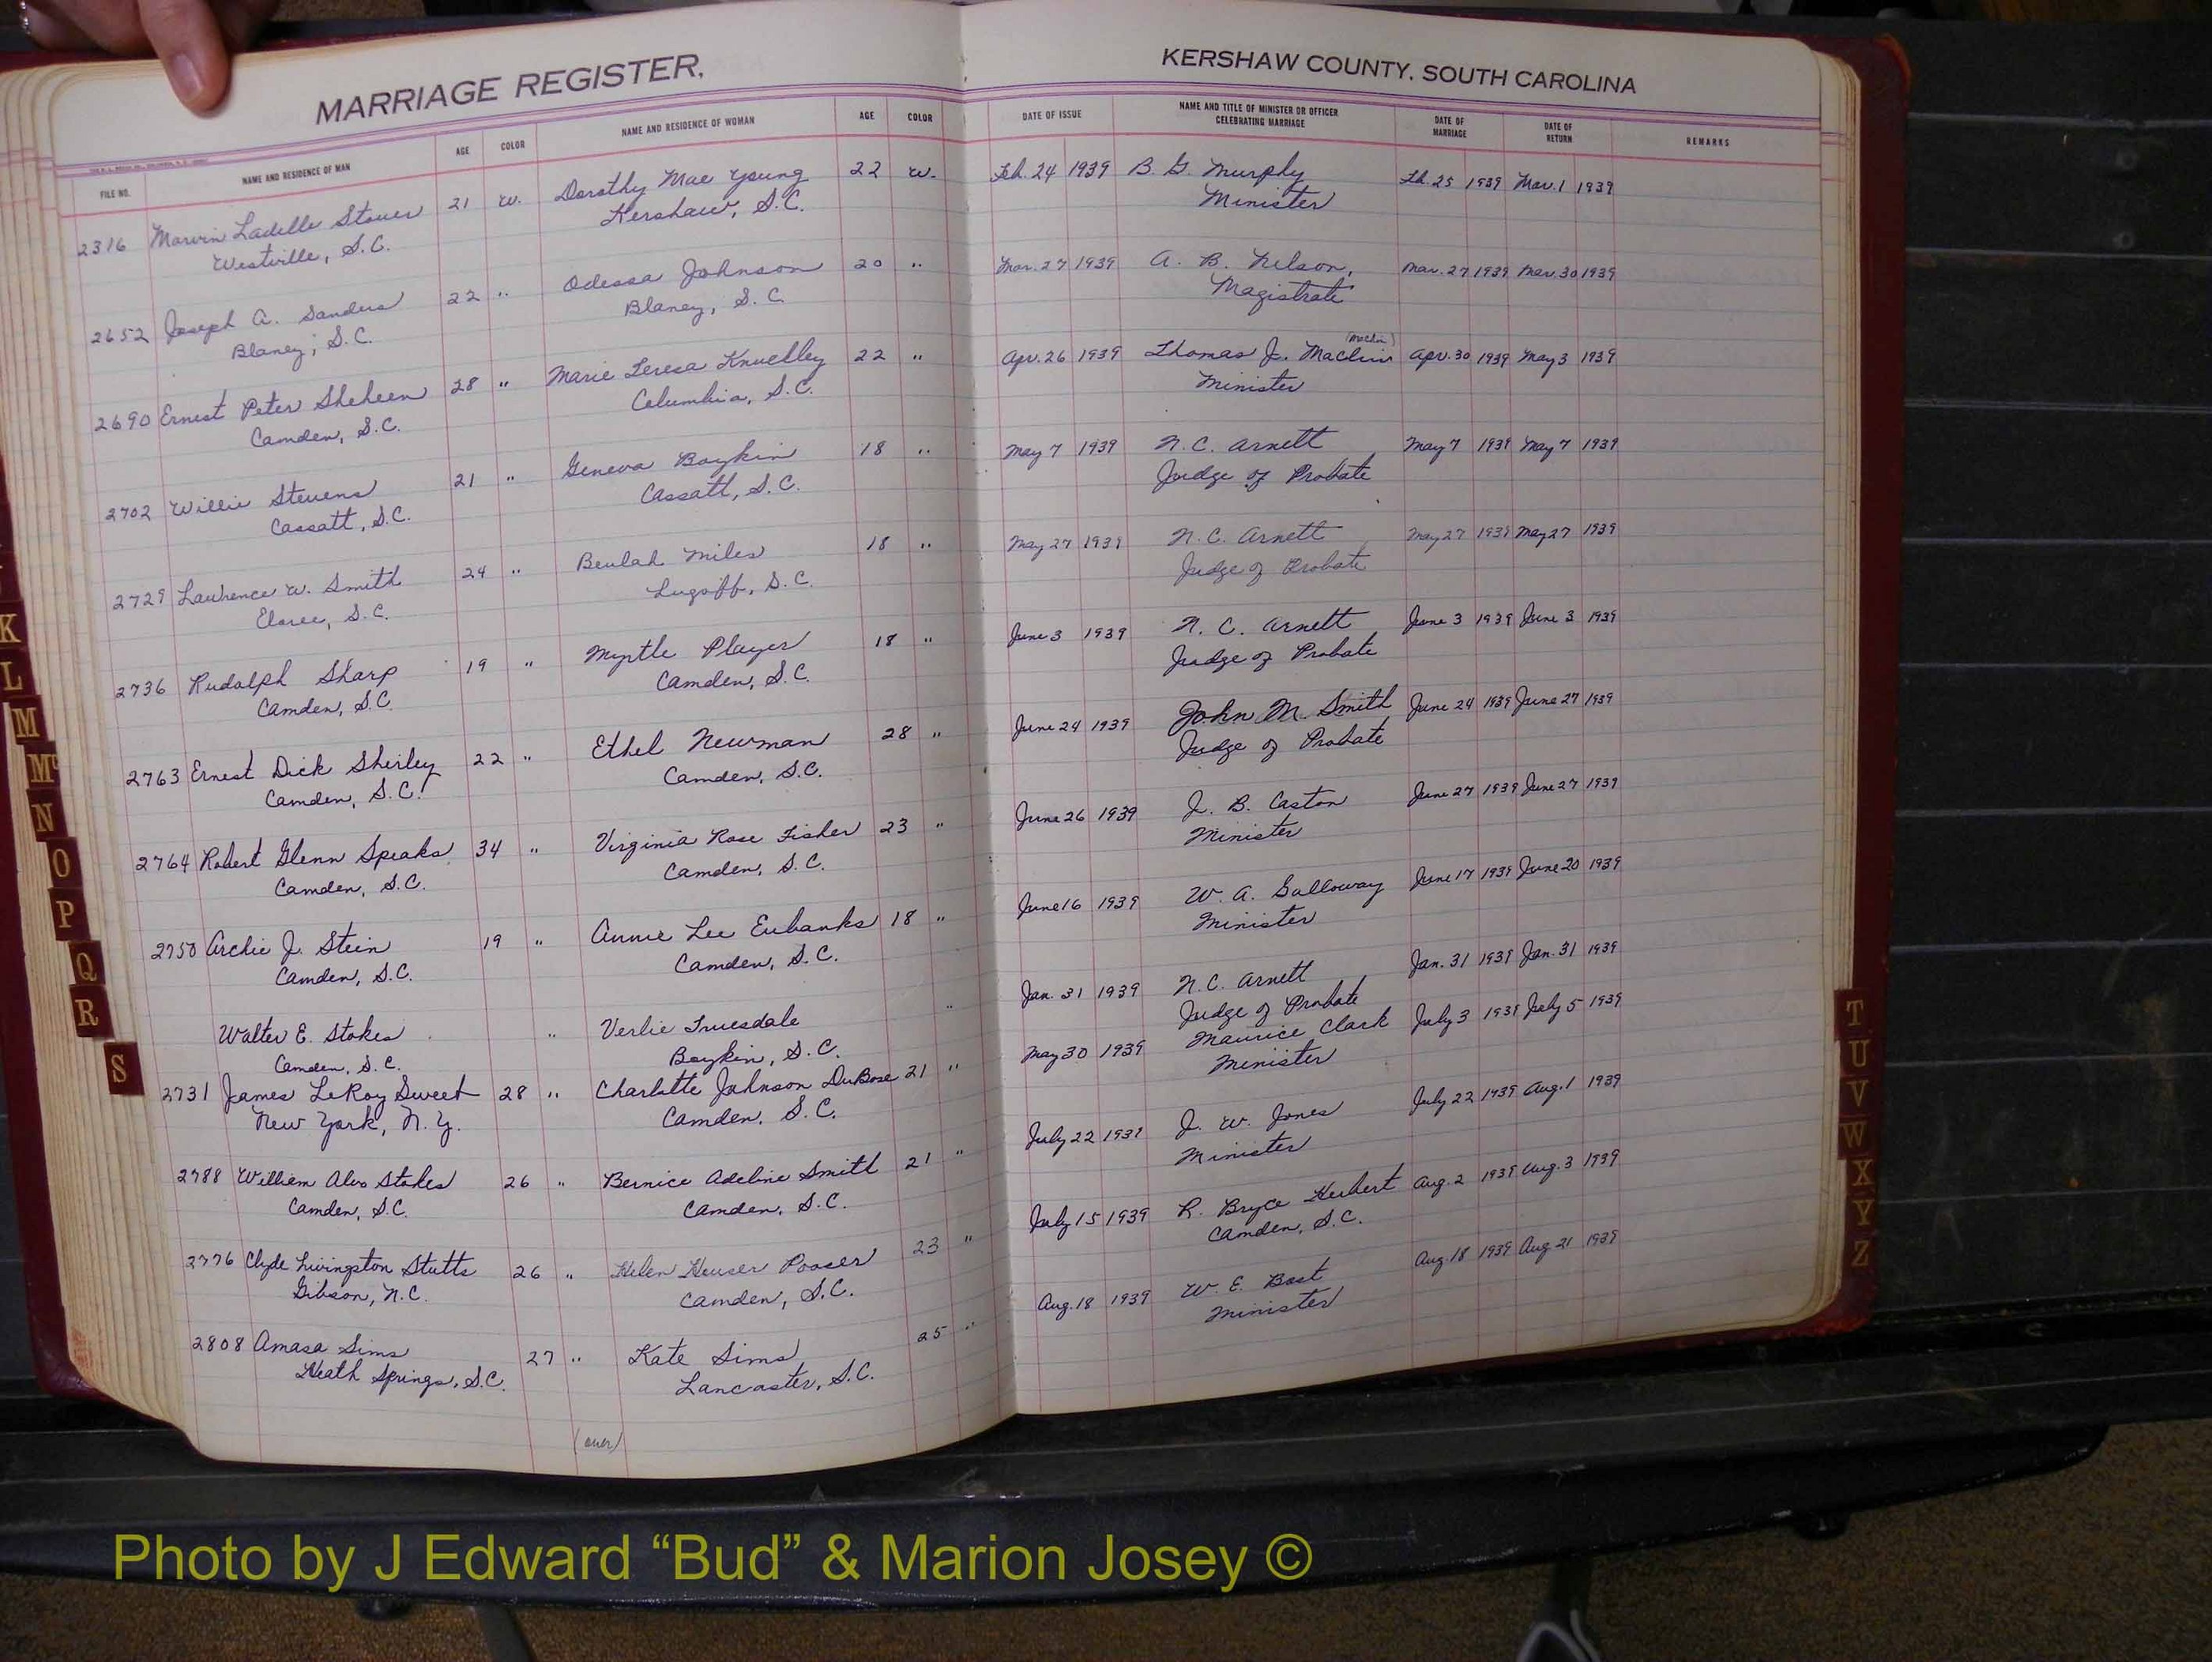 MARRIAGE REGISTER,
KERSHAW COUNTY, SOUTH CAROLINA
FILE NO. NAME AND RESIDENCE OF MAN AGE COLOR NAME AND RESIDENCE OF WOMAN AGE COLOR DATE OF ISSUE NAME AND TITLE OF MINISTER OR OFFICER CELEBRATING MARRIAGE DATE OF MARRIAGE DATE OF RETURN REMARKS
2316 Marvin Ladelle Stover 21 W. Dorothy Mae Young 22 W. Feb. 24 1939 B. G. Murphy Feb. 25 1939 Mar. 1 1939
Westville, S.C. Kershaw, S.C. Minister
2652 Joseph A. Sanders 22 " Odessa Johnson 20 " Mar. 27 1939 A. B. Nelson, Mar. 27 1939 Mar. 30 1939
Blaney, S.C. Blaney, S.C. Magistrate
2690 Ernest Peter Sheheen 28 " Marie Teresa 22 " Apr. 26 1939 Thomas J. Apr. 30 1939 May 3 1939
Camden, S.C. Columbia, S.C. Minister
2702 Willie Stevens 21 " Geneva Boykin 18 " May 7 1939 N. C. Arnett May 7 1939 May 7 1939
Cassatt, S.C. Cassatt, S.C. Judge of Probate
2729 Lawrence W. Smith 24 " Beulah Miles 18 " May 27 1939 N. C. Arnett May 27 1939 May 27 1939
Eloree, S.C. Lugoff, S.C. Judge of Probate
2736 Rudolph Sharp 19 " Myrtle Player 18 " June 3 1939 N. C. Arnett June 3 1939 June 3 1939
Camden, S.C. Camden, S.C. Judge of Probate
2763 Ernest Dick Shirley 22 " Ethel Newman 28 " June 24 1939 John M. Smith June 24 1939 June 27 1939
Camden, S.C. Camden, S.C. Judge of Probate
2764 Robert Glenn Speaks 34 " Virginia Rose Fisher 23 " June 26 1939 J. B. Caston June 27 1939 June 27 1939
Camden, S.C. Camden, S.C. Minister
2750 Archie J. Stein 19 " Annie Lee Eubanks 18 " June 16 1939 W. A. Galloway June 17 1939 June 20 1939
Camden, S.C. Camden, S.C. Minister
Walter E. Stokes " Verlie Truesdale " Jan. 31 1939 N. C. Arnett Jan. 31 1939 Jan. 31 1939
Camden, S.C. Boykin, S.C. Judge of Probate
2731 James LeRoy Sweet 28 " Charlotte Johnson DuBose 21 " May 30 1939 Maurice Clark July 3 1939 July 5 1939
New York, N.Y. Camden, S.C. Minister
2788 William Alvo Stokes 26 " Bernice Adeline Smith 21 " July 22 1939 J. W. Jones July 22 1939 Aug. 1 1939
Camden, S.C. Camden, S.C. Minister
2776 Clyde Livingston Stutts 26 " Helen Heuser Pooser 23 " July 15 1939 R. Bryce Herbert Aug. 2 1939 Aug. 3 1939
Gibson, N.C. Camden, S.C. Camden, S.C.
2808 Amasa Sims 27 " Kate Sims 25 " Aug. 18 1939 W. E. Bost Aug. 18 1939 Aug. 21 1939
Heath Springs, S.C. Lancaster, S.C. Minister
(over)
K
L
M
Mc
N
O
P
Q
R
S
T
U
V
W
X
Y
Z
Photo by J Edward “Bud” & Marion Josey ©